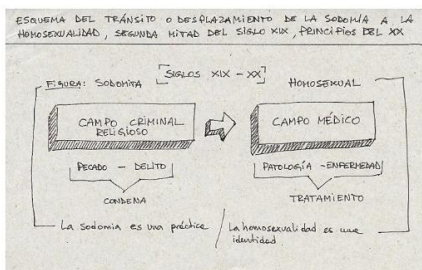 ESQUEMA DEL TRÁNSITO O DESPLAZAMIENTO DE LA SODOMÍA A LA
HOMOSEXUALIDAD, SEGUNDA MITAD DEL SIGLO XIX, PRINCIPIOS DEL XX
[SIGLOS XIX - XX]
FIGURA: SODOMITA
HOMOSEXUAL
CAMPO CRIMINAL
RELIGIOSO
CAMPO MÉDICO
PECADO - DELITO
PATOLOGÍA - ENFERMEDAD
CONDENA
TRATAMIENTO
La sodomia es una práctica / La homosexualidad es una
identidad